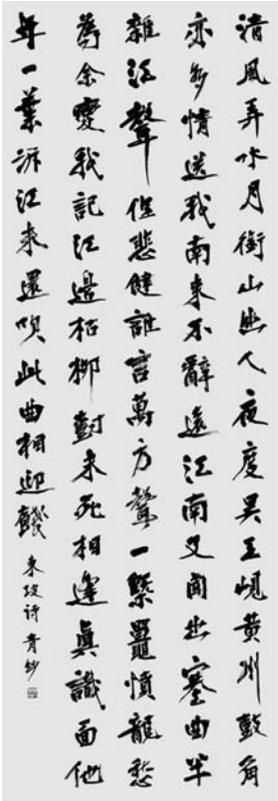 清風弄水月銜山幽人夜度吳王峴黃州鼓角
亦多情送我南来不辭遠江南又聞出塞曲半
雜江聲作悲健誰言萬方聲一槩鼉憤龍愁
為余變我記江邊枯柳樹未死相逢眞識面他
年一葉泝江來還吹此曲相迎餞
東坡诗青鈔